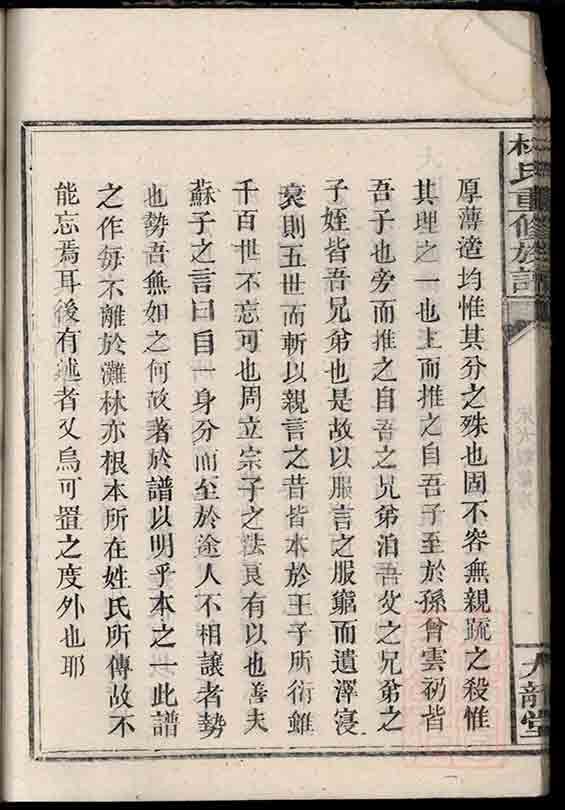 林氏重修族譜
厚薄適均惟其分之殊也固不容無親疏之殺惟
其理之一也上而推之自吾子至於孫曾雲礽皆
吾子也旁而推之自吾之兄弟洎吾父之兄弟之
子姪皆吾兄弟也是故以服言之服窮而遺澤寖
衰則五世而斬以親言之昔皆本於王子所衍雖
千百世不忘可也周立宗子之法良有以也善夫
蘇子之言曰自一身分而至於途人不相讓者勢
也勢吾無如之何故著於譜以明乎本之一此譜
之作每不離於灘林亦根本所在姓氏所傳故不
能忘焉耳後有述者又烏可置之度外也耶
九龍堂